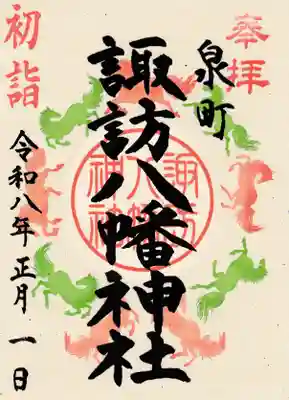 奉拝
泉町
諏訪八幡神社
諏訪八幡神社
初詣
令和八年正月一日